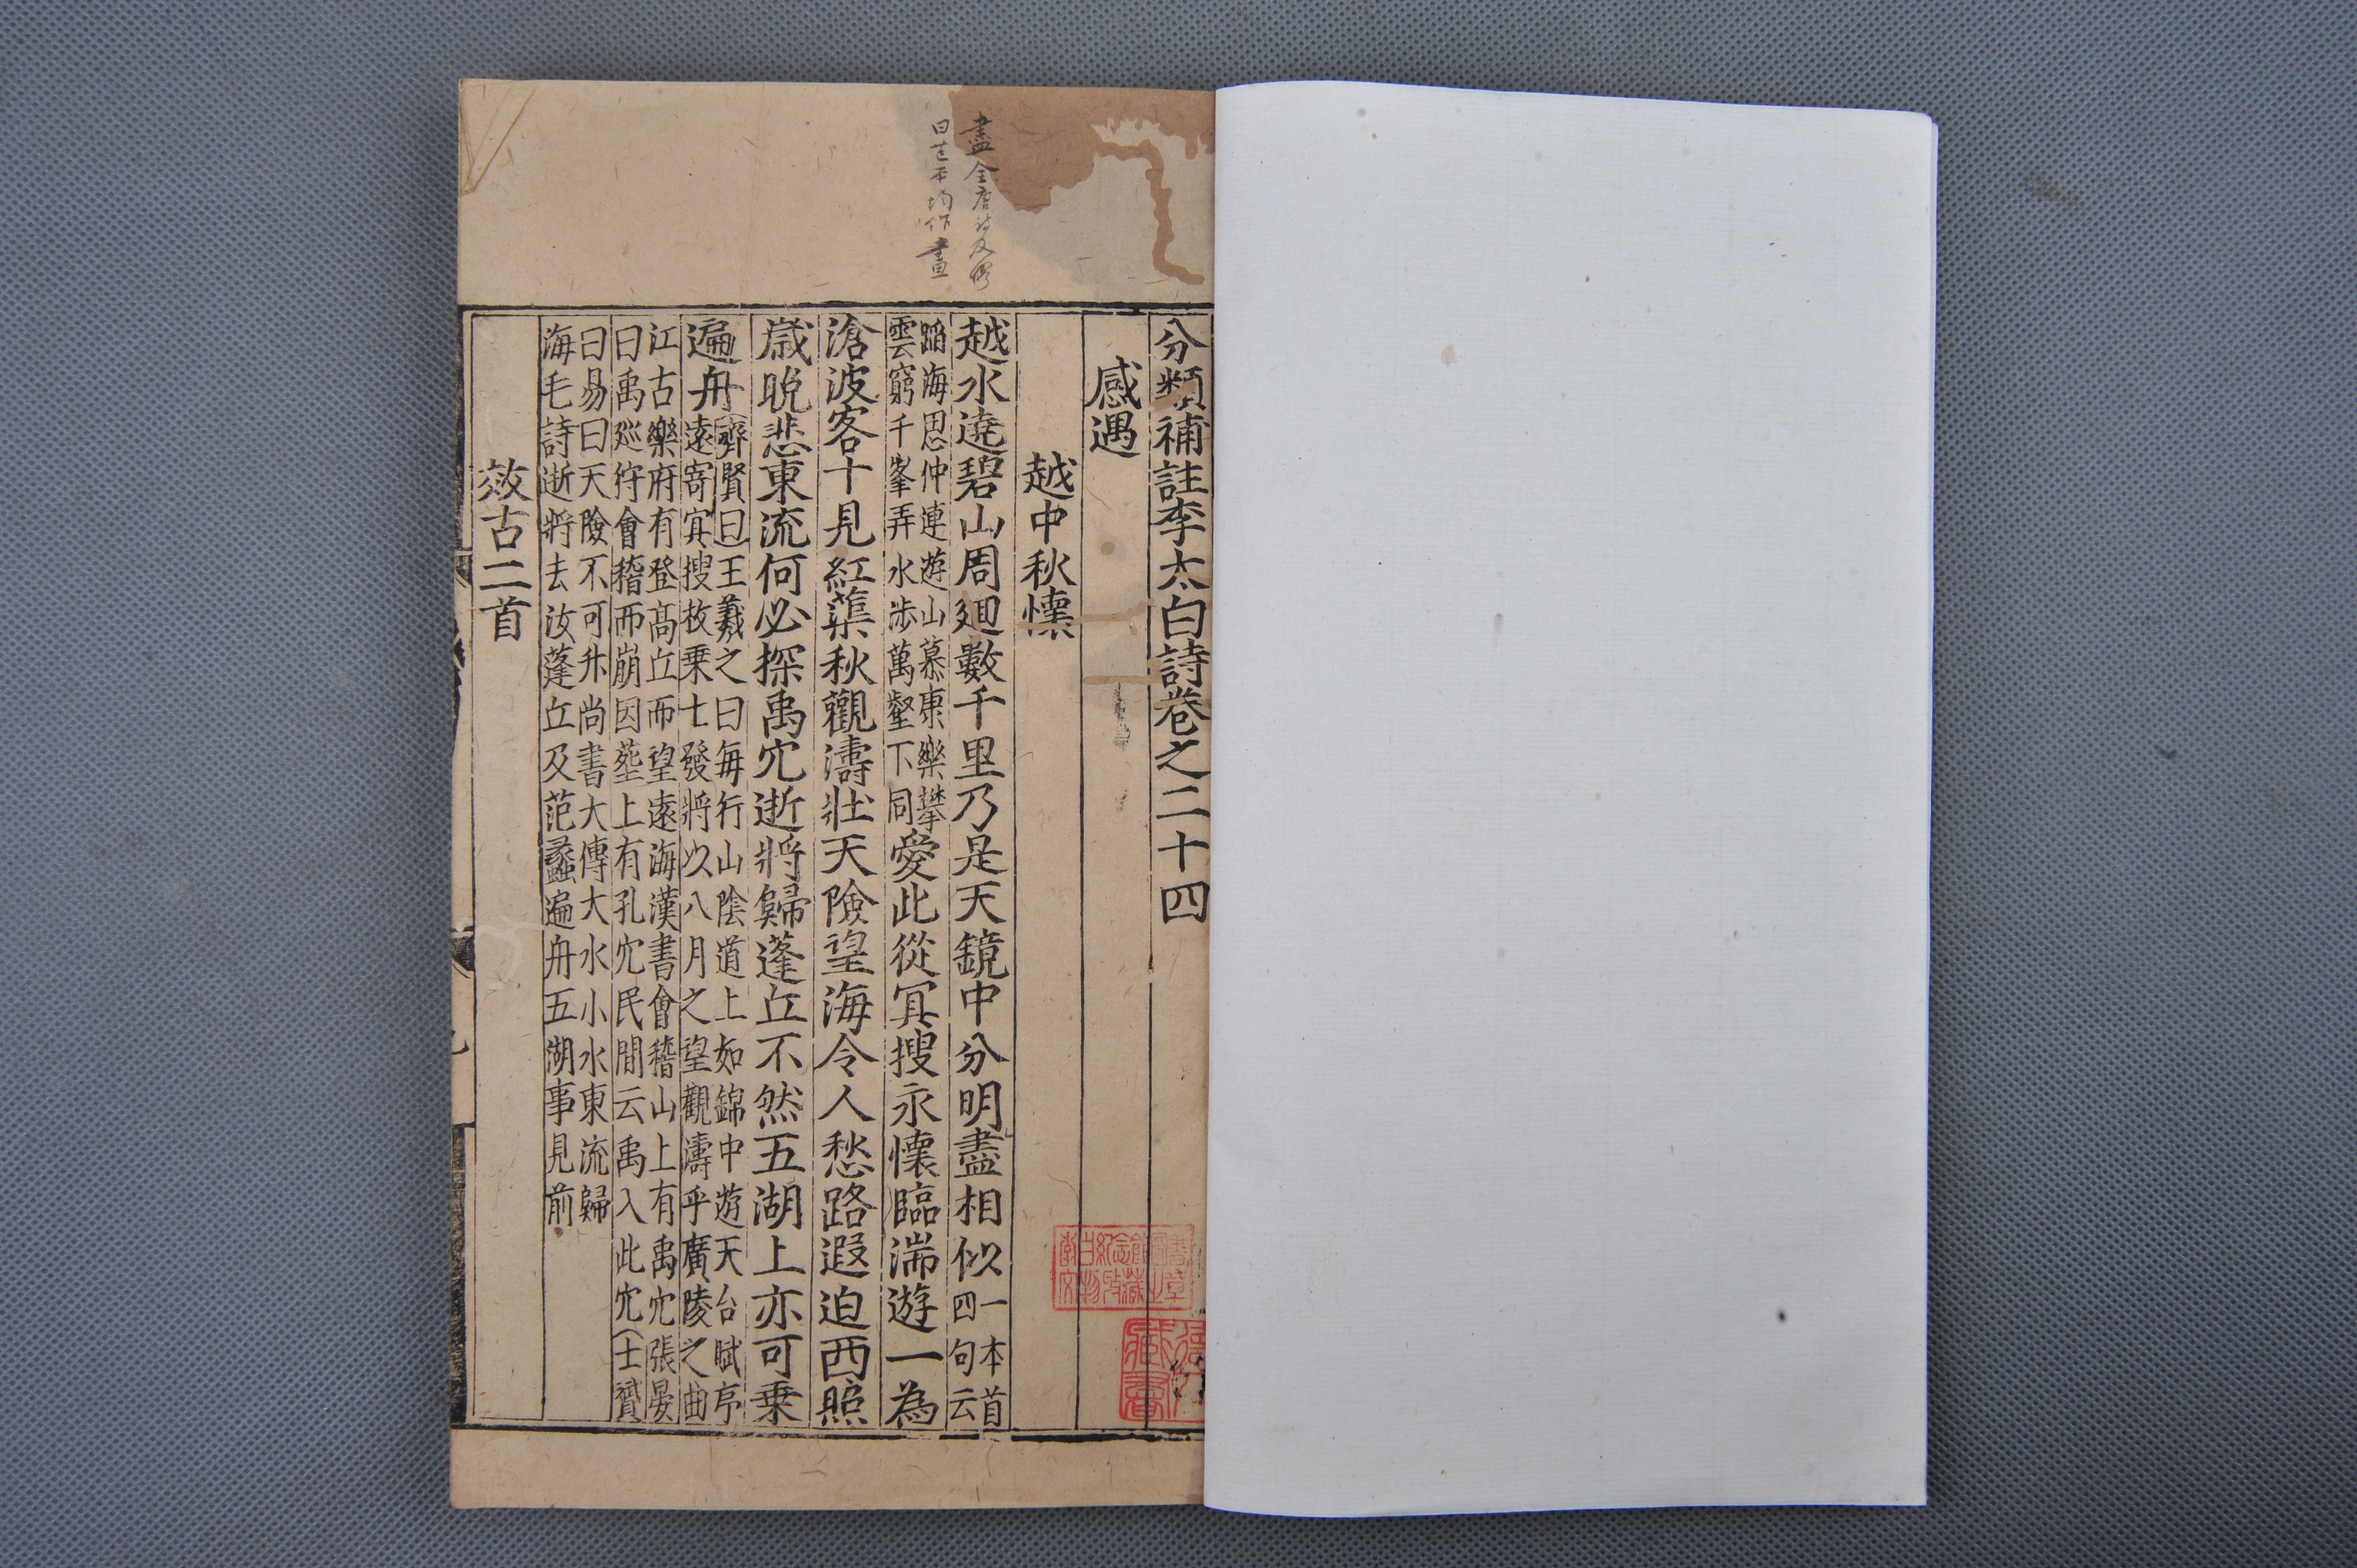 盡全唐詩及繆
曰芑本均作畫
分類補註李太白詩卷之二十四
感遇
越中秋懷
越水遶碧山周廻數千里乃是天鏡中分明盡相似一本首
四句云
蹈海思仲連遊山慕康樂攀
雲窮千峯弄水涉萬壑下同
愛此從冥搜永懷臨湍遊一為
滄波客十見紅蕖秋觀濤壯天險望海令人愁路遐迫西照
歲晚悲東流何必探禹穴逝將歸蓬丘不然五湖上亦可乗
遍舟
齊賢曰王羲之曰每行山陰道上如錦中遊天台賦亭
遠寄冥搜枚乗七發將以八月之望觀濤乎廣陵之曲
江古樂府有登高丘而望遠海漢書會稽山上有禹穴張晏
曰禹廵狩會稽而崩因塟上有孔穴民間云禹入此穴士贇
曰易曰天險不可升尚書大傳大水小水東流歸
海毛詩逝將去汝蓬丘及范蠡遍舟五湖事見前
效古二首